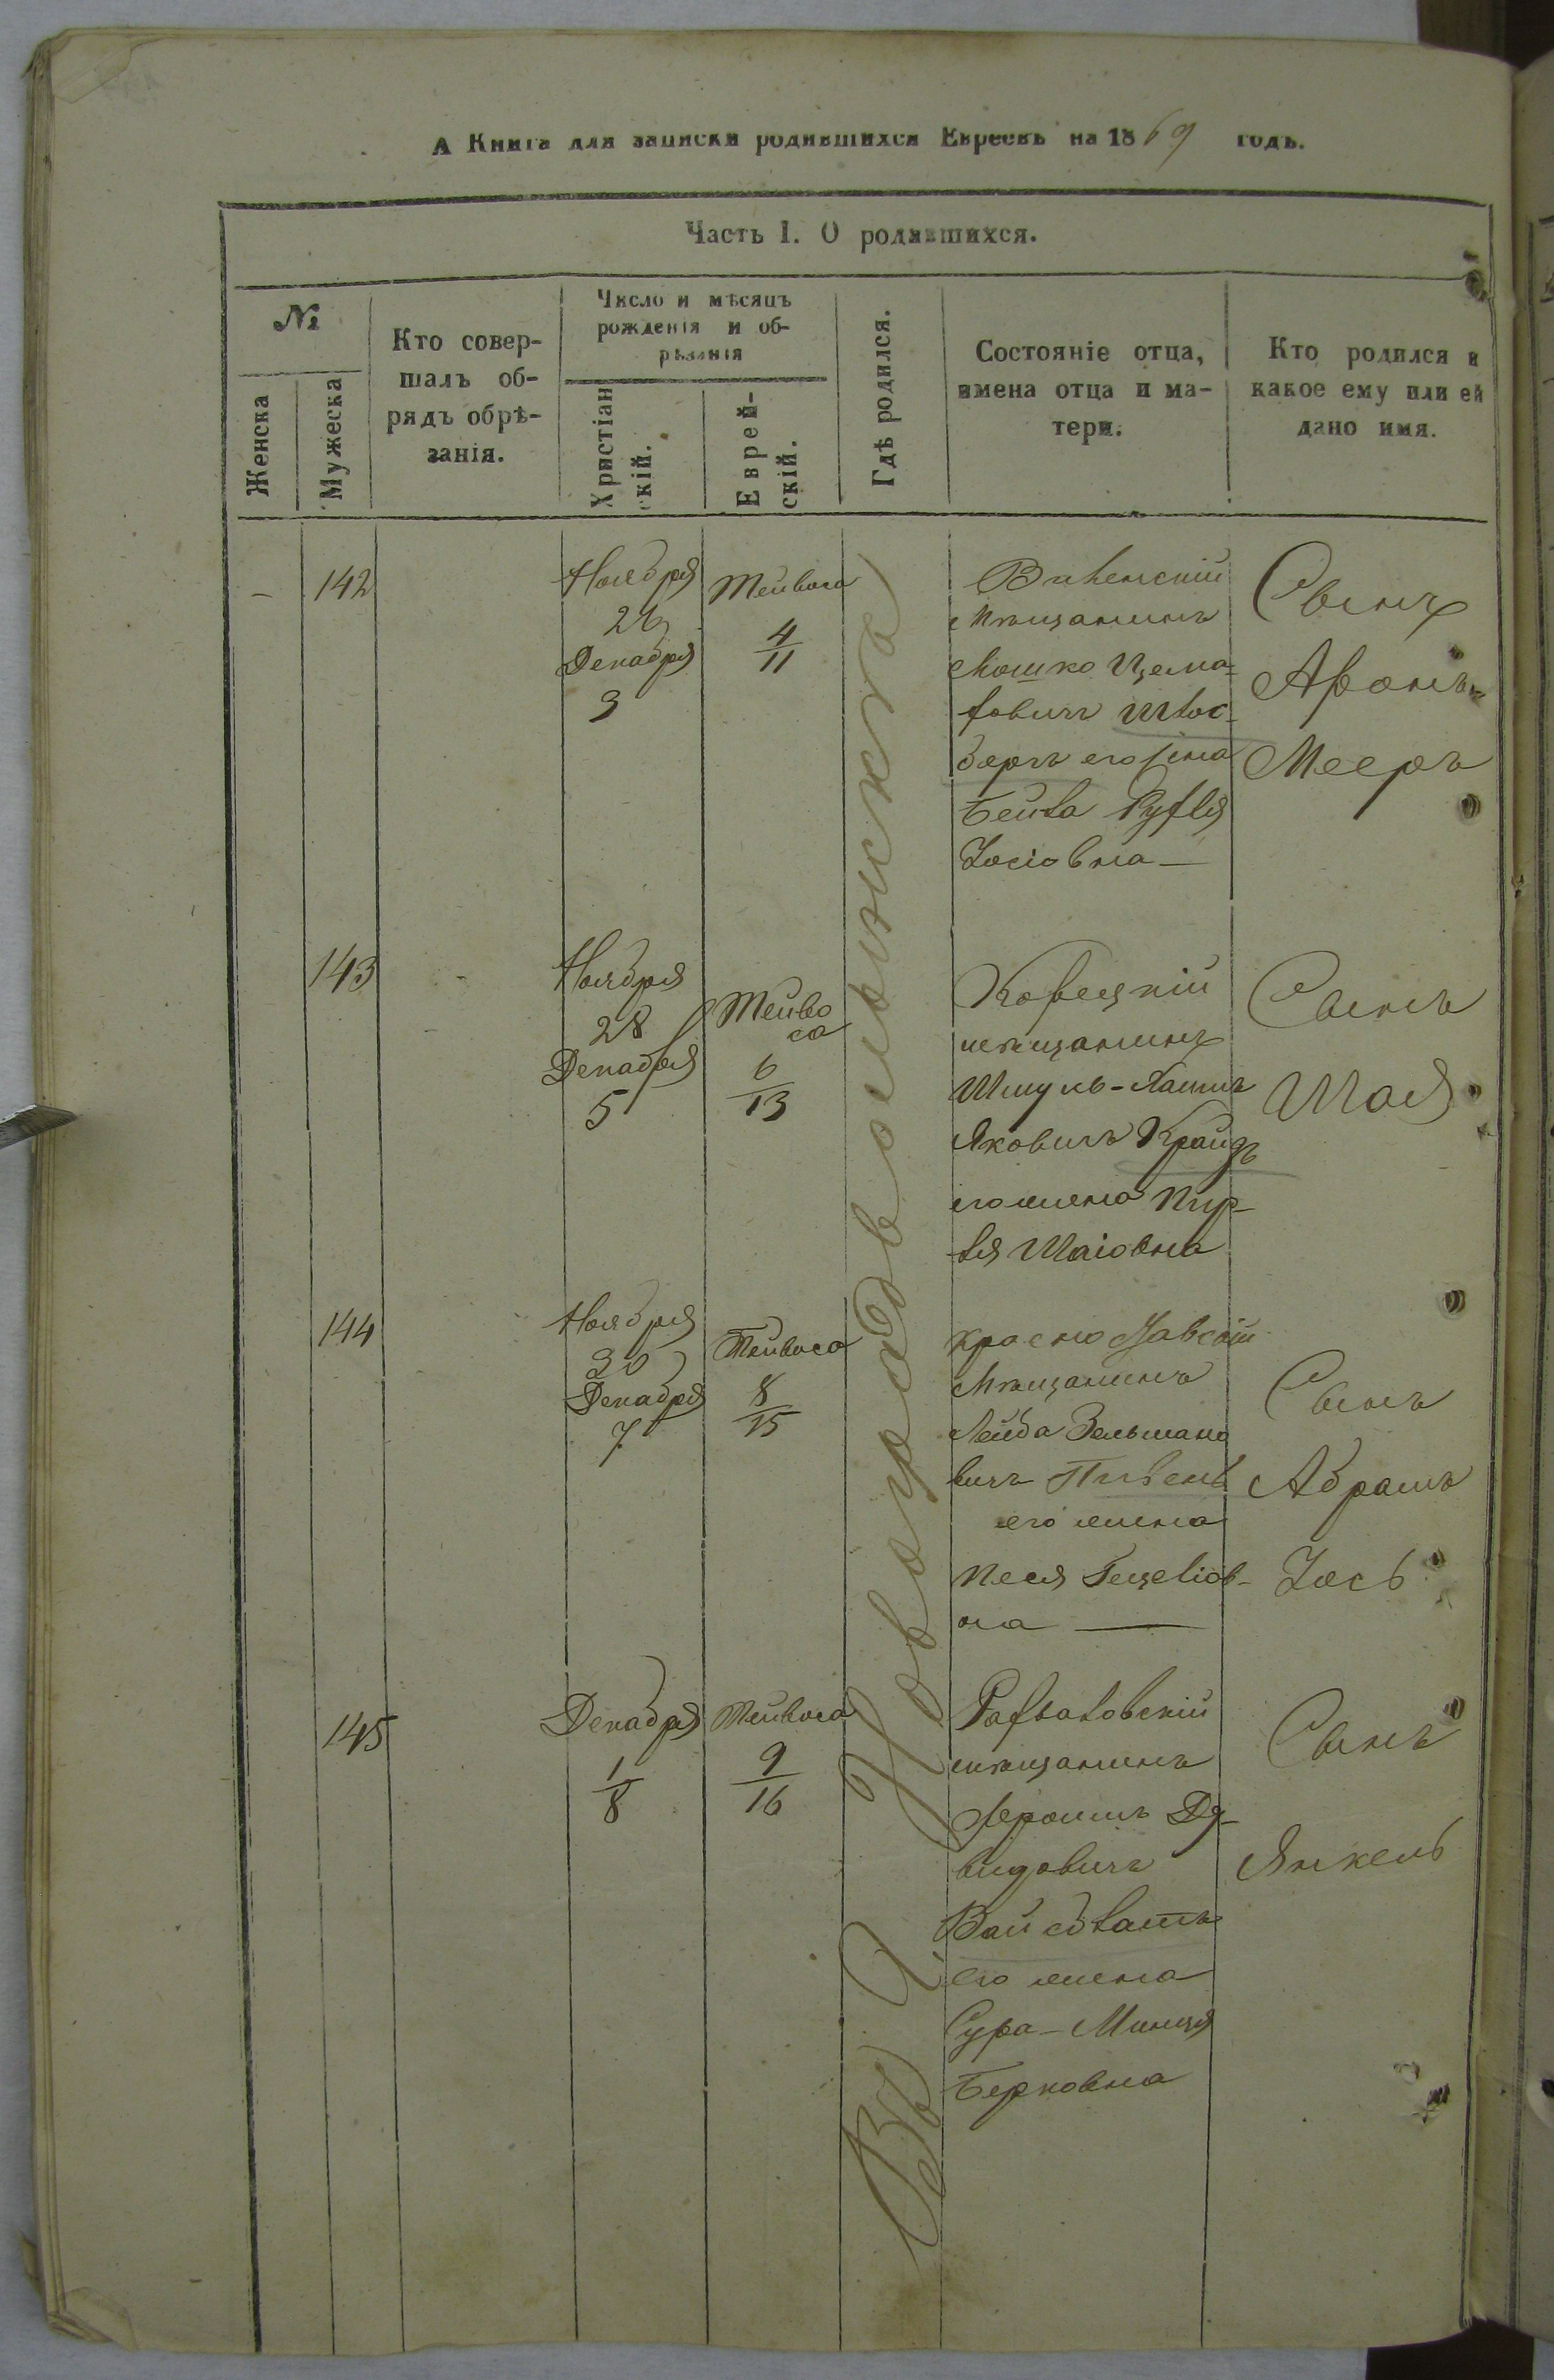 А Книга для записки родившихся Евреевъ на 1869 годъ.
Часть I. О родившихся.
№
Женска
Мужеска
Кто совер-
шалъ об-
рядъ обрѣ-
занія.
Число и мѣсяцъ
рожденія и об-
рѣзанія
Христіан
скій.
Еврей-
скій.
Гдѣ родился.
Состояніе отца,
имена отца и ма-
тери.
Кто родился и
какое ему или ей
дано имя.
Въ г. Новоградволынскѣ
142
Ноября
26
Декабря
3
Тейвоса
4
11
Виленскій
Мѣщанинъ
Мошко Цема-
ховичъ
берг его жена
Бейла Рухля
Іосіовна —
Сынъ
Аронъ-
Мееръ
143
Ноября
28
Декабря
5
Тейво
са
6
13
Корецкій
мѣщанинъ
Шмуль-Хаимъ
Яковичъ
его жена Пер-
ля Шаіовна
Сынъ
Шая
144
Ноября
30
Декабря
7
Тейвоса
8
15
Мѣщанинъ
Лейба Зельмано
вичъ
его жена
Песя Гецеліов-
на —
Сынъ
Абрамъ
Іось
145
Декабря
1
8
Тейвоса
9
16
Рафаловскій
мѣщанинъ
Да-
видовичъ
Вайсблатъ
его жена
Сура-Минця
Берковна
Сынъ
Янкель